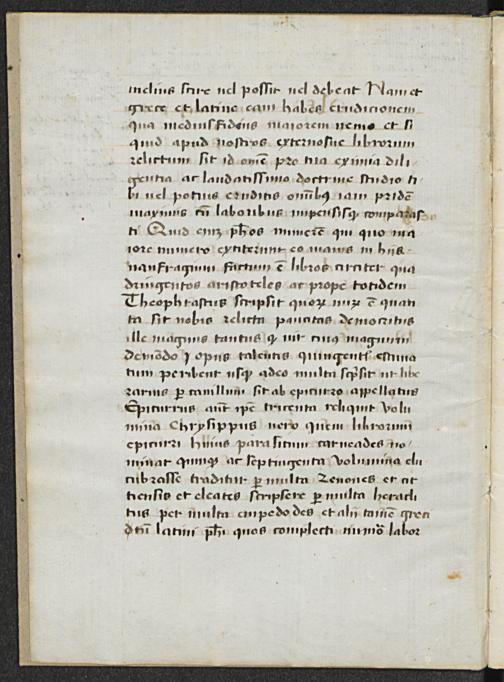 melius scire uel possit uel debeat Nam et
grece et latine eam habes erudicionem
qua mediusfidius maiorem nemo et si
quid apud nostros externosue librorum
relictum sit id omē pro tua eximia dili
gentia ac laudatissimo doctrine studio ti
bi uel potius eruditis omībꝫ iam pridē
maximis cū laboribus impensisqꝫ comparas
ti Quid enī pħos numerē qui quo ma
iore numero extiterunt eo maius in hijs
naufragium factum ē libros circiter qua
dringentos aristoteles ac prope totidem
Theophrastus scripsit quoꝝ mīꝝ ē quāti
ta sit nobis relicta paucitas democritus
ille magnus tantus uir cuiꝰ magnum
opus talentis quingentis estima
tum peribent usqꝫ adeo multa scpsit ut libe
rarius ꝑ camillum sit ab epicurro appellatus
Epicurrus aūt ip̄e tricenta reliquit Volu
mina Chrysippus uero quem librorum
epicurri huius parasitum carneades no
minat quinqꝫ ac septingenta volumina elu
cubrasse traditur ꝑ multa Zenones et cit
tiensis et eleates scripsere ꝑ multa heracli
tus per multa empedodes et alij tamē greci
latini pħi quos complecti nimiō labor